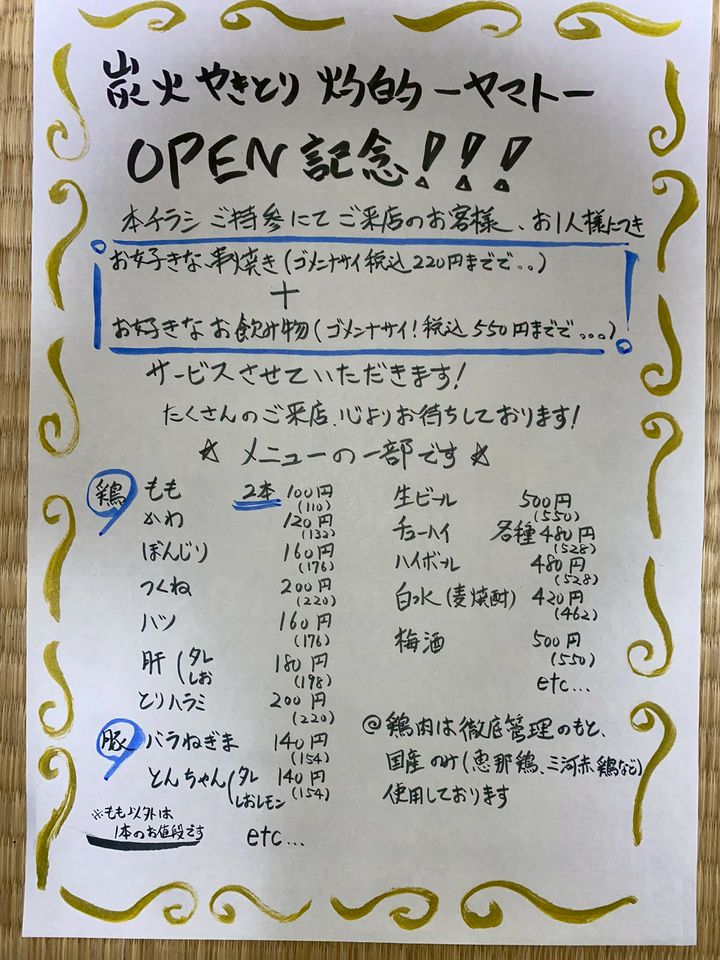 炭火 やきとり 灼的 ーヤマトー
OPEN 記念!!!
本チラシご持参にてご来店のお客様、お1人様につき
お好きな串焼き(ゴメンナサイ税込220円までで。。)
+
お好きなお飲み物(ゴメンナサイ!税込550円までで。。。)
サービスさせていただきます!
たくさんのご来店、心よりお待ちしております!
☆ メニューの一部です ☆
鶏 もも 2本 100円
(110)
かわ 120円
(132)
ぼんじり 160円
(176)
つくね 200円
(220)
ハツ 160円
(176)
肝(タレ 180円
しお (198)
とりハラミ 200円
(220)
豚 バラねぎま 140円
(154)
とんちゃん(タレ 140円
しおレモン (154)
※もも以外は
1本のお値段です
etc...
生ビール 500円
(550)
チューハイ 各種 480円
(528)
ハイボール 480円
(528)
白水(麦焼酎) 420円
(462)
梅酒 500円
(550)
etc...
@鶏肉は徹底管理のもと、
国産のみ(恵那鶏、三河赤鶏など)
使用しております